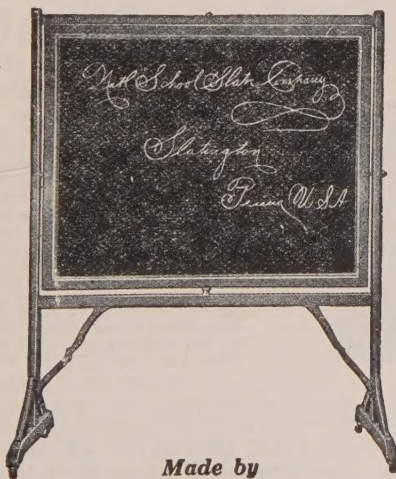 Natl School Slate Company
Slatington
Penna U.S.A
Made by